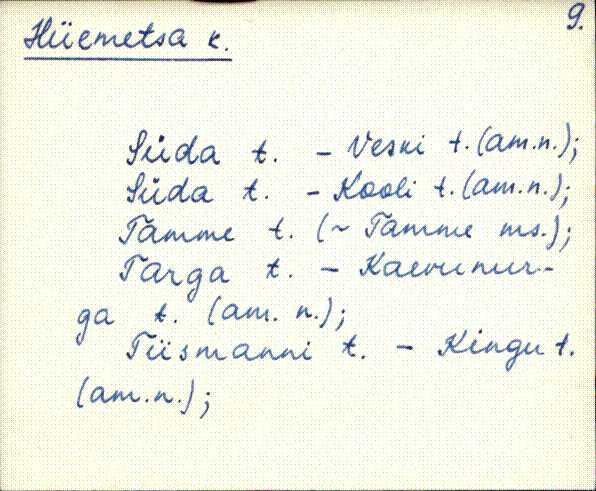 9.
Hüemetsa k.
Süda t. - Veski t. (am.n.);
Süda t. - Kooli t. (am.n.);
Tamme t. (~ Tamme ms.);
Targa t. - Kaevunur-
ga t. (am. n.);
Tiismanni t. - Kingu t.
(am.n.);